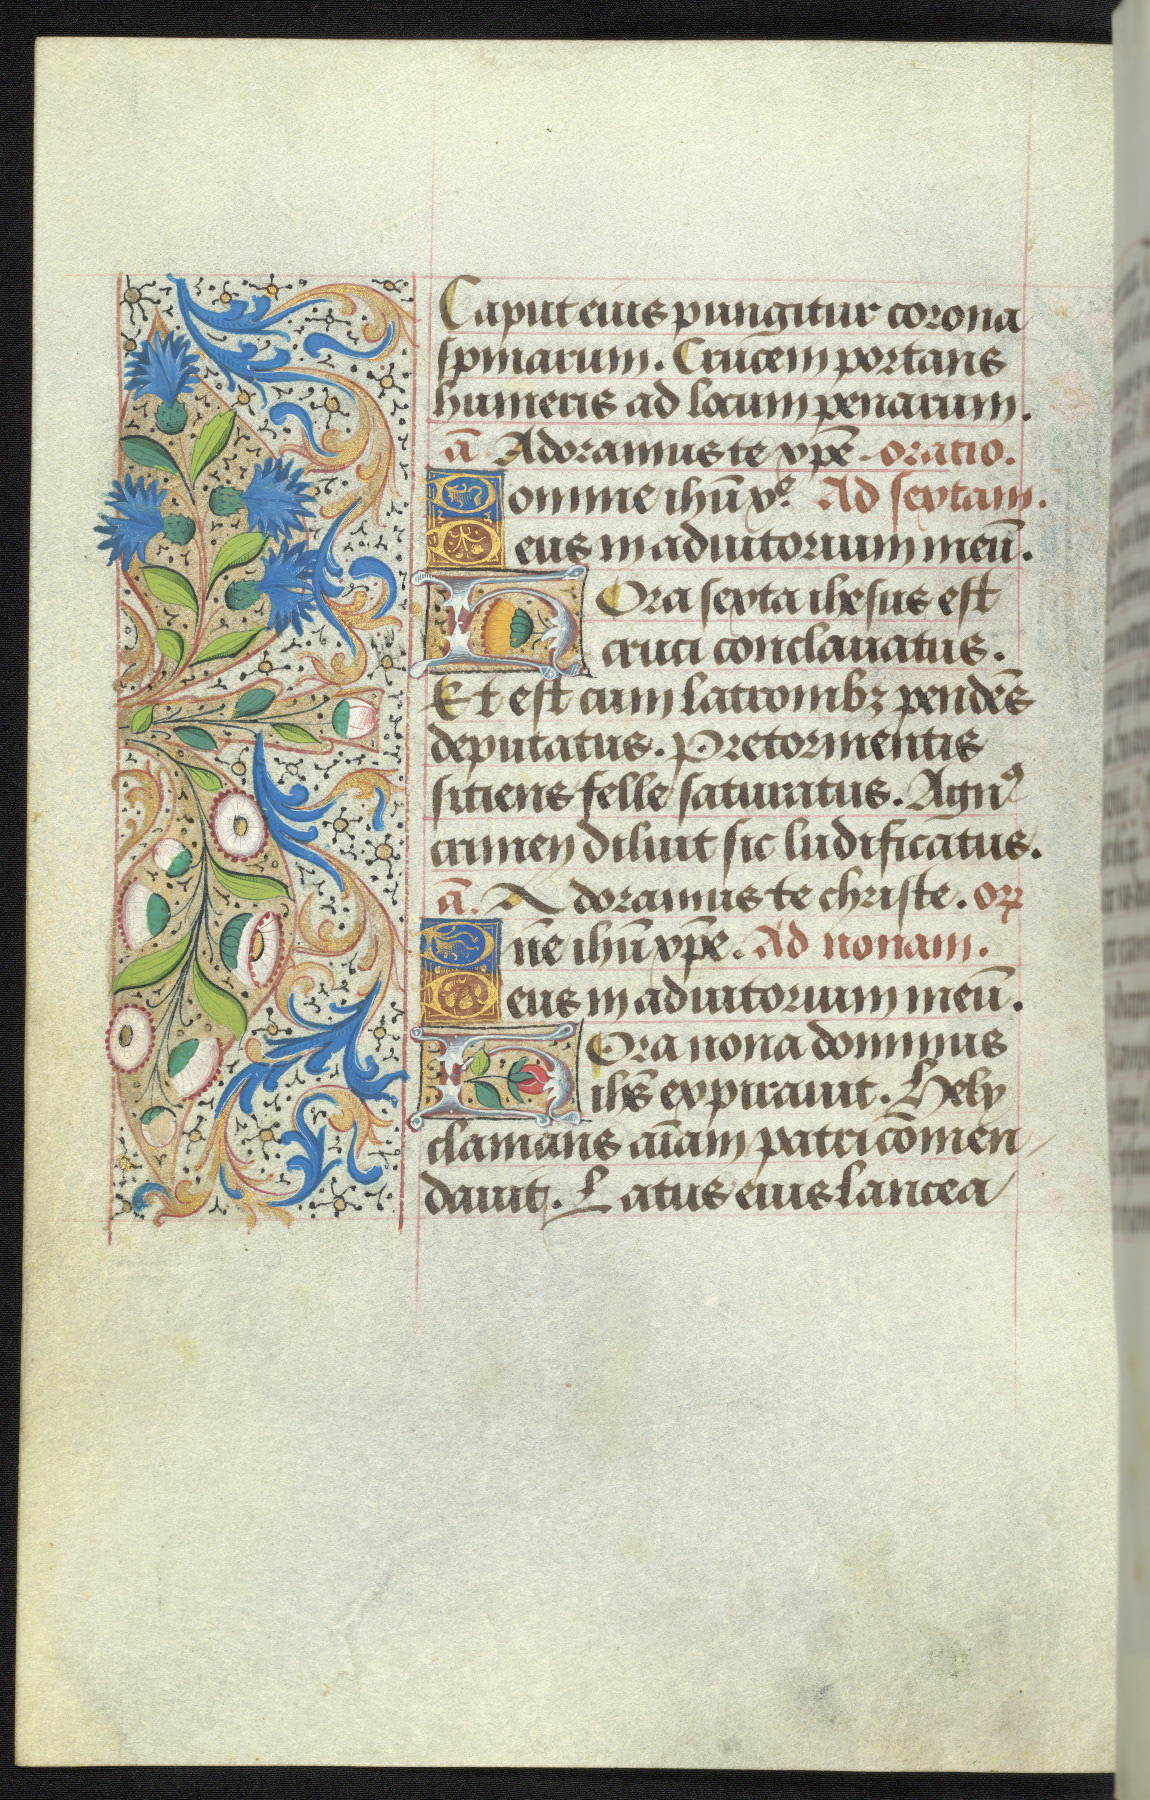 Caput eius pungitur corona
spinarum. Crucem portans
humeris ad locum penarum.
an̄ Adoramus te xp̄e. oratio.
Domine ihū xe. Ad sextam.
Deus in adiutorium meū.
Hora sexta ihesus est
cruci conclauatus.
Et est cum latronibꝫ pendēs
deputatus. Pre tormentis
sitiens felle saturatus. Agnꝰ
crimen diluit sic ludificatus.
ā. Adoramus te christe. or̄
Dn̄e ihū xp̄e. Ad nonam.
Deus in adiutorium meū.
Hora nona dominus
ihs̄ expirauit. Hely
clamans aīam patri cōmen
dauit. Latus eius lancea